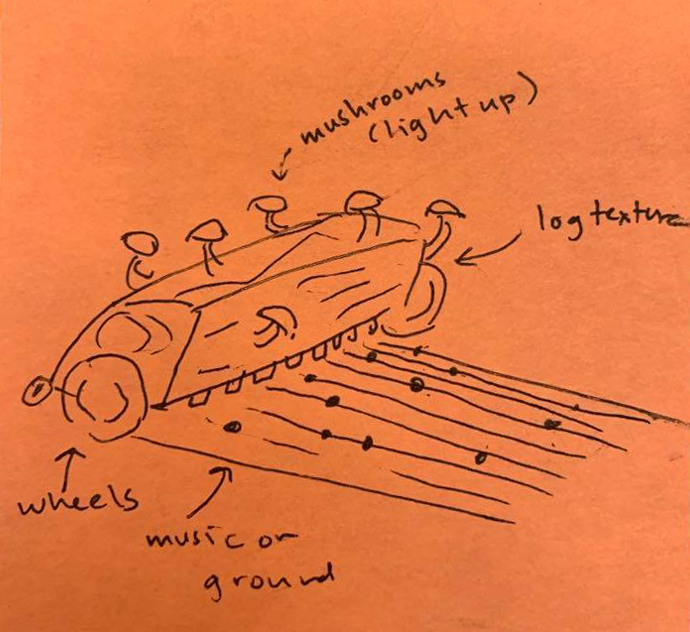 mushrooms
(light up)
log texture
wheels
music on
ground